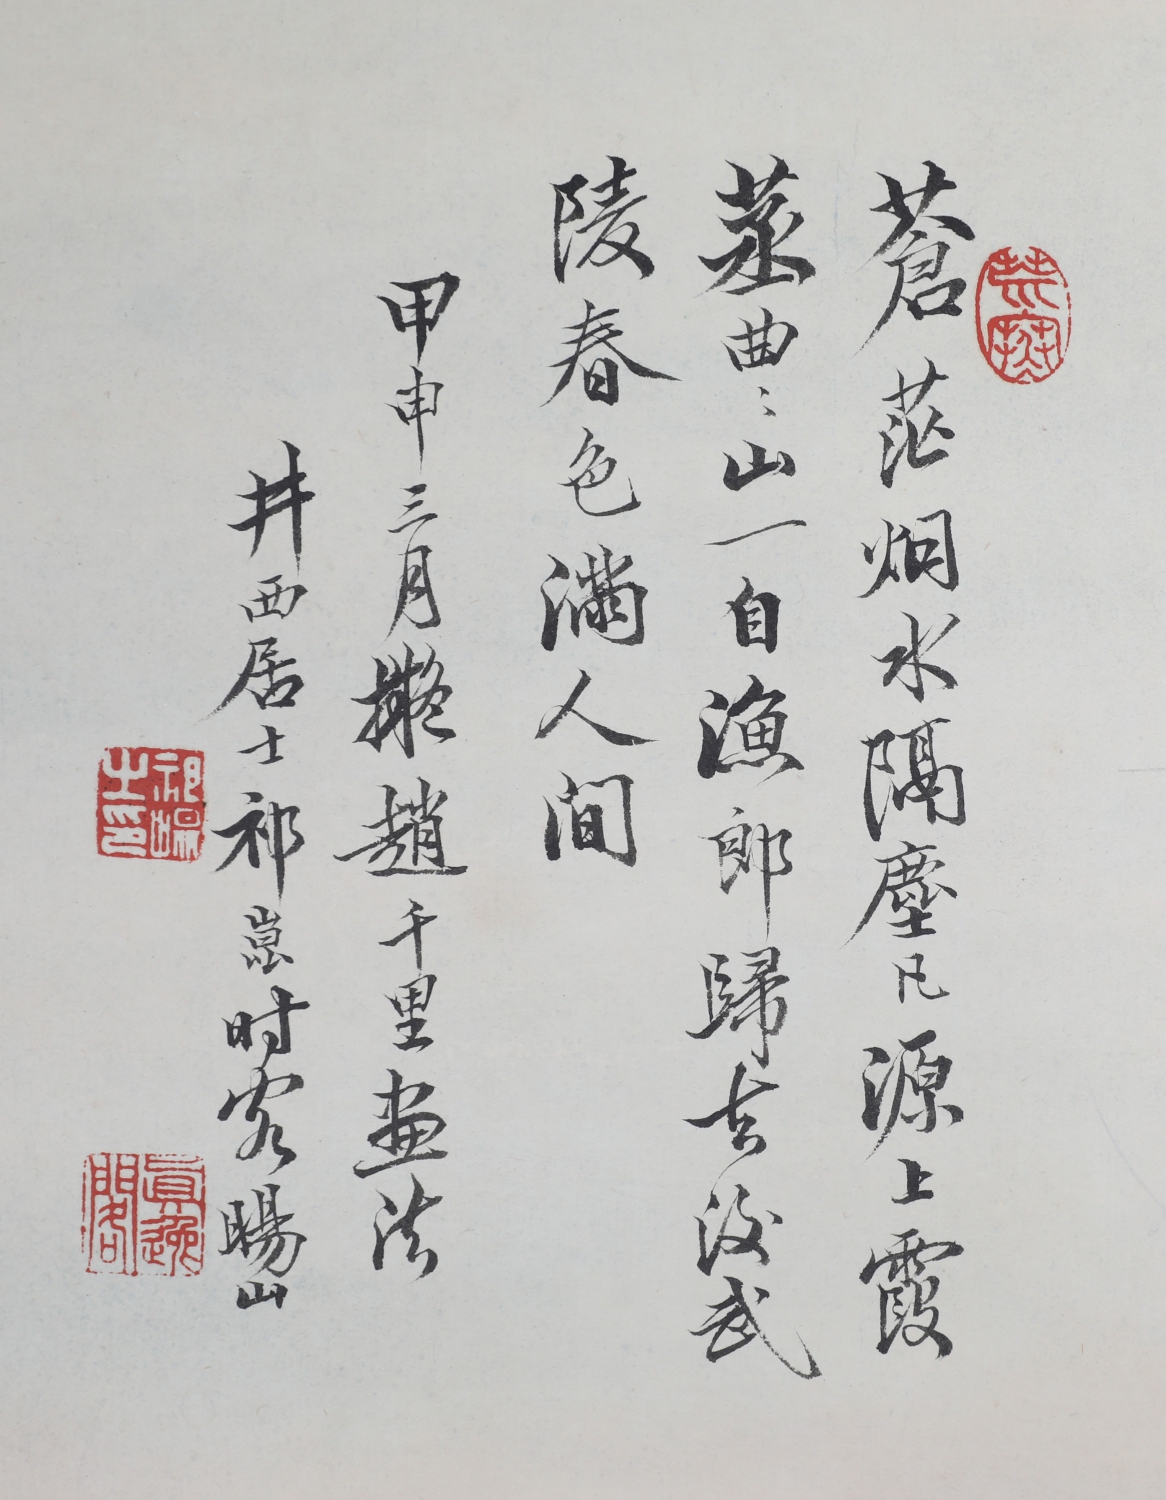 蒼茫烟水隔塵凡源上霞
蒸曲〻山一自漁郎歸去後武
陵春色滿人間
甲申三月擬趙千里畫法
井西居士祁崑时客暘山
祁崐之印
真逸閣